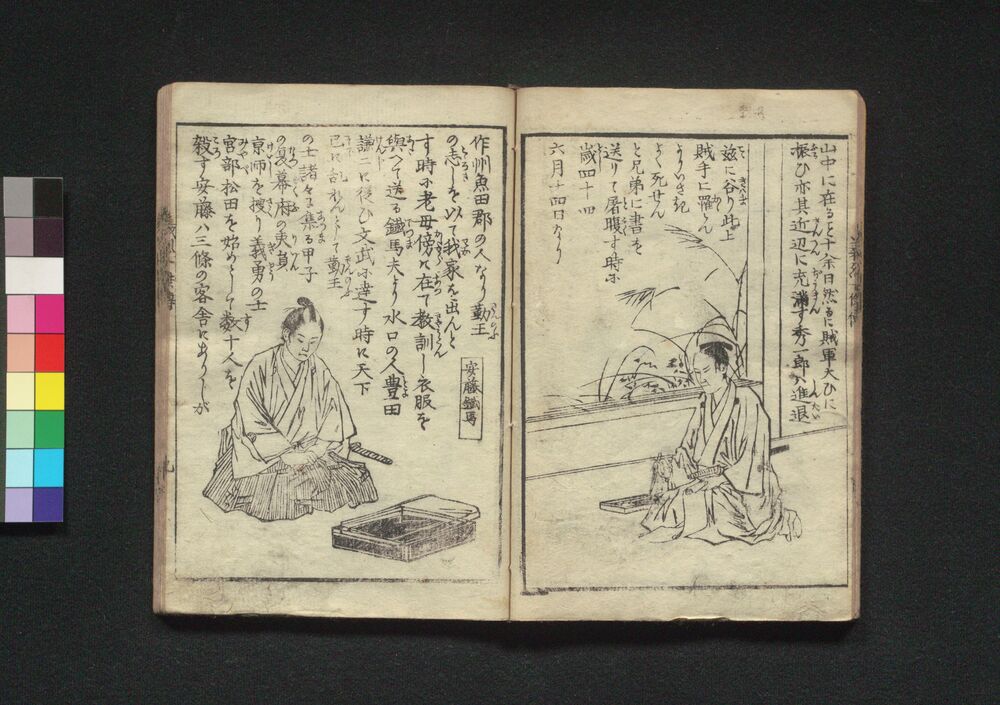 山中に在ると十余日然るに賊軍大ひに
振ひ亦其近辺に充満す秀一郎ハ進退
茲に谷り此上
賊手に罹らん
よりいさぎ
よく死せん
と兄弟に書を
送りて屠腹す時に
歳四十四
六月十四日なり
安藤鐵馬
作州魚田郡の人なり勤王
の志しを以て我家を出んと
す時に老母傍に在て教訓し衣服を
與へて送る鐵馬夫より水口の人豊田
謙二に従ひ文武に達す時に天下
已に乱れんとして勤王
の士諸々に集る甲子
の夏幕府の吏員
京師を捜り義勇の士
宮部松田を始めとして数十人を
殺す安藤ハ三條の客舎にありしが